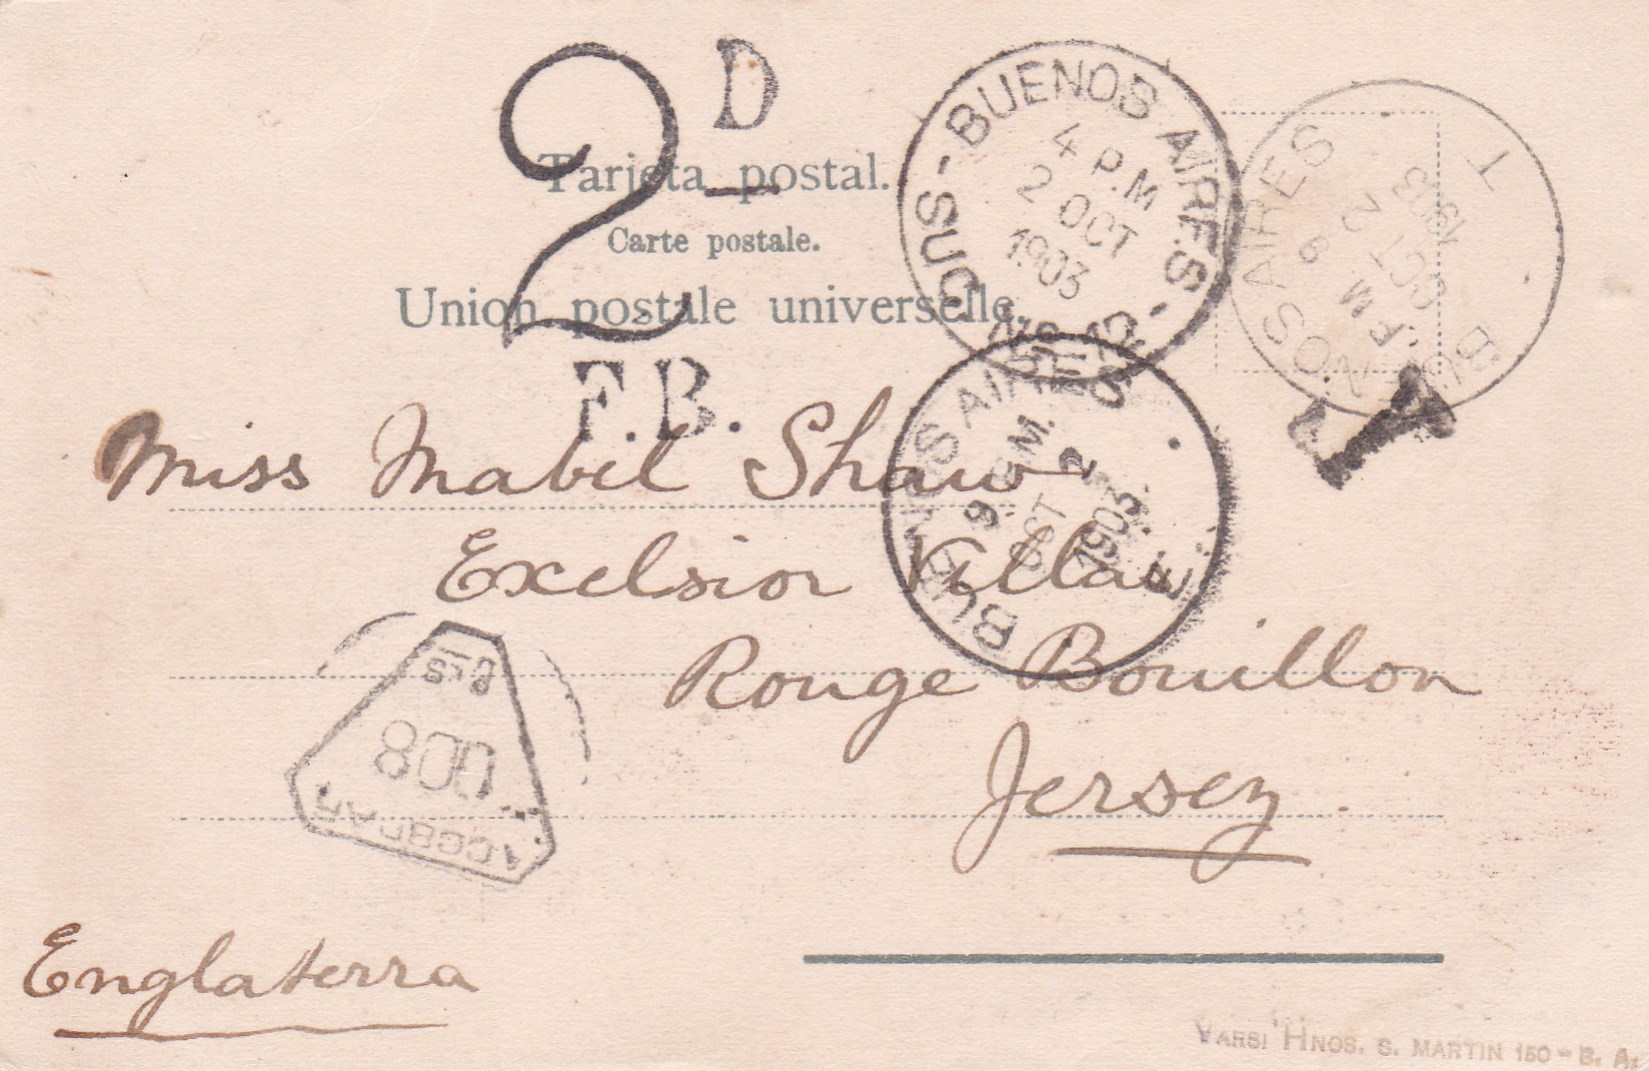 2 D
Tarjeta postal.
Carte postale.
Union postale universelle.
F.B.
SUC - BUENOS AIRES -
4 P.M
2 OCT
1903
BUENOS AIRES
T
P.M.
OCT 2
1903
T
BUENOS AIRES
9 P.M.
OCT 2
1903
Miss Mabel Shaw
Excelsior Villa
Rouge Bouillon
Jersey
Englaterra
008
VARSI HNOS. S. MARTIN 150 - B. A.